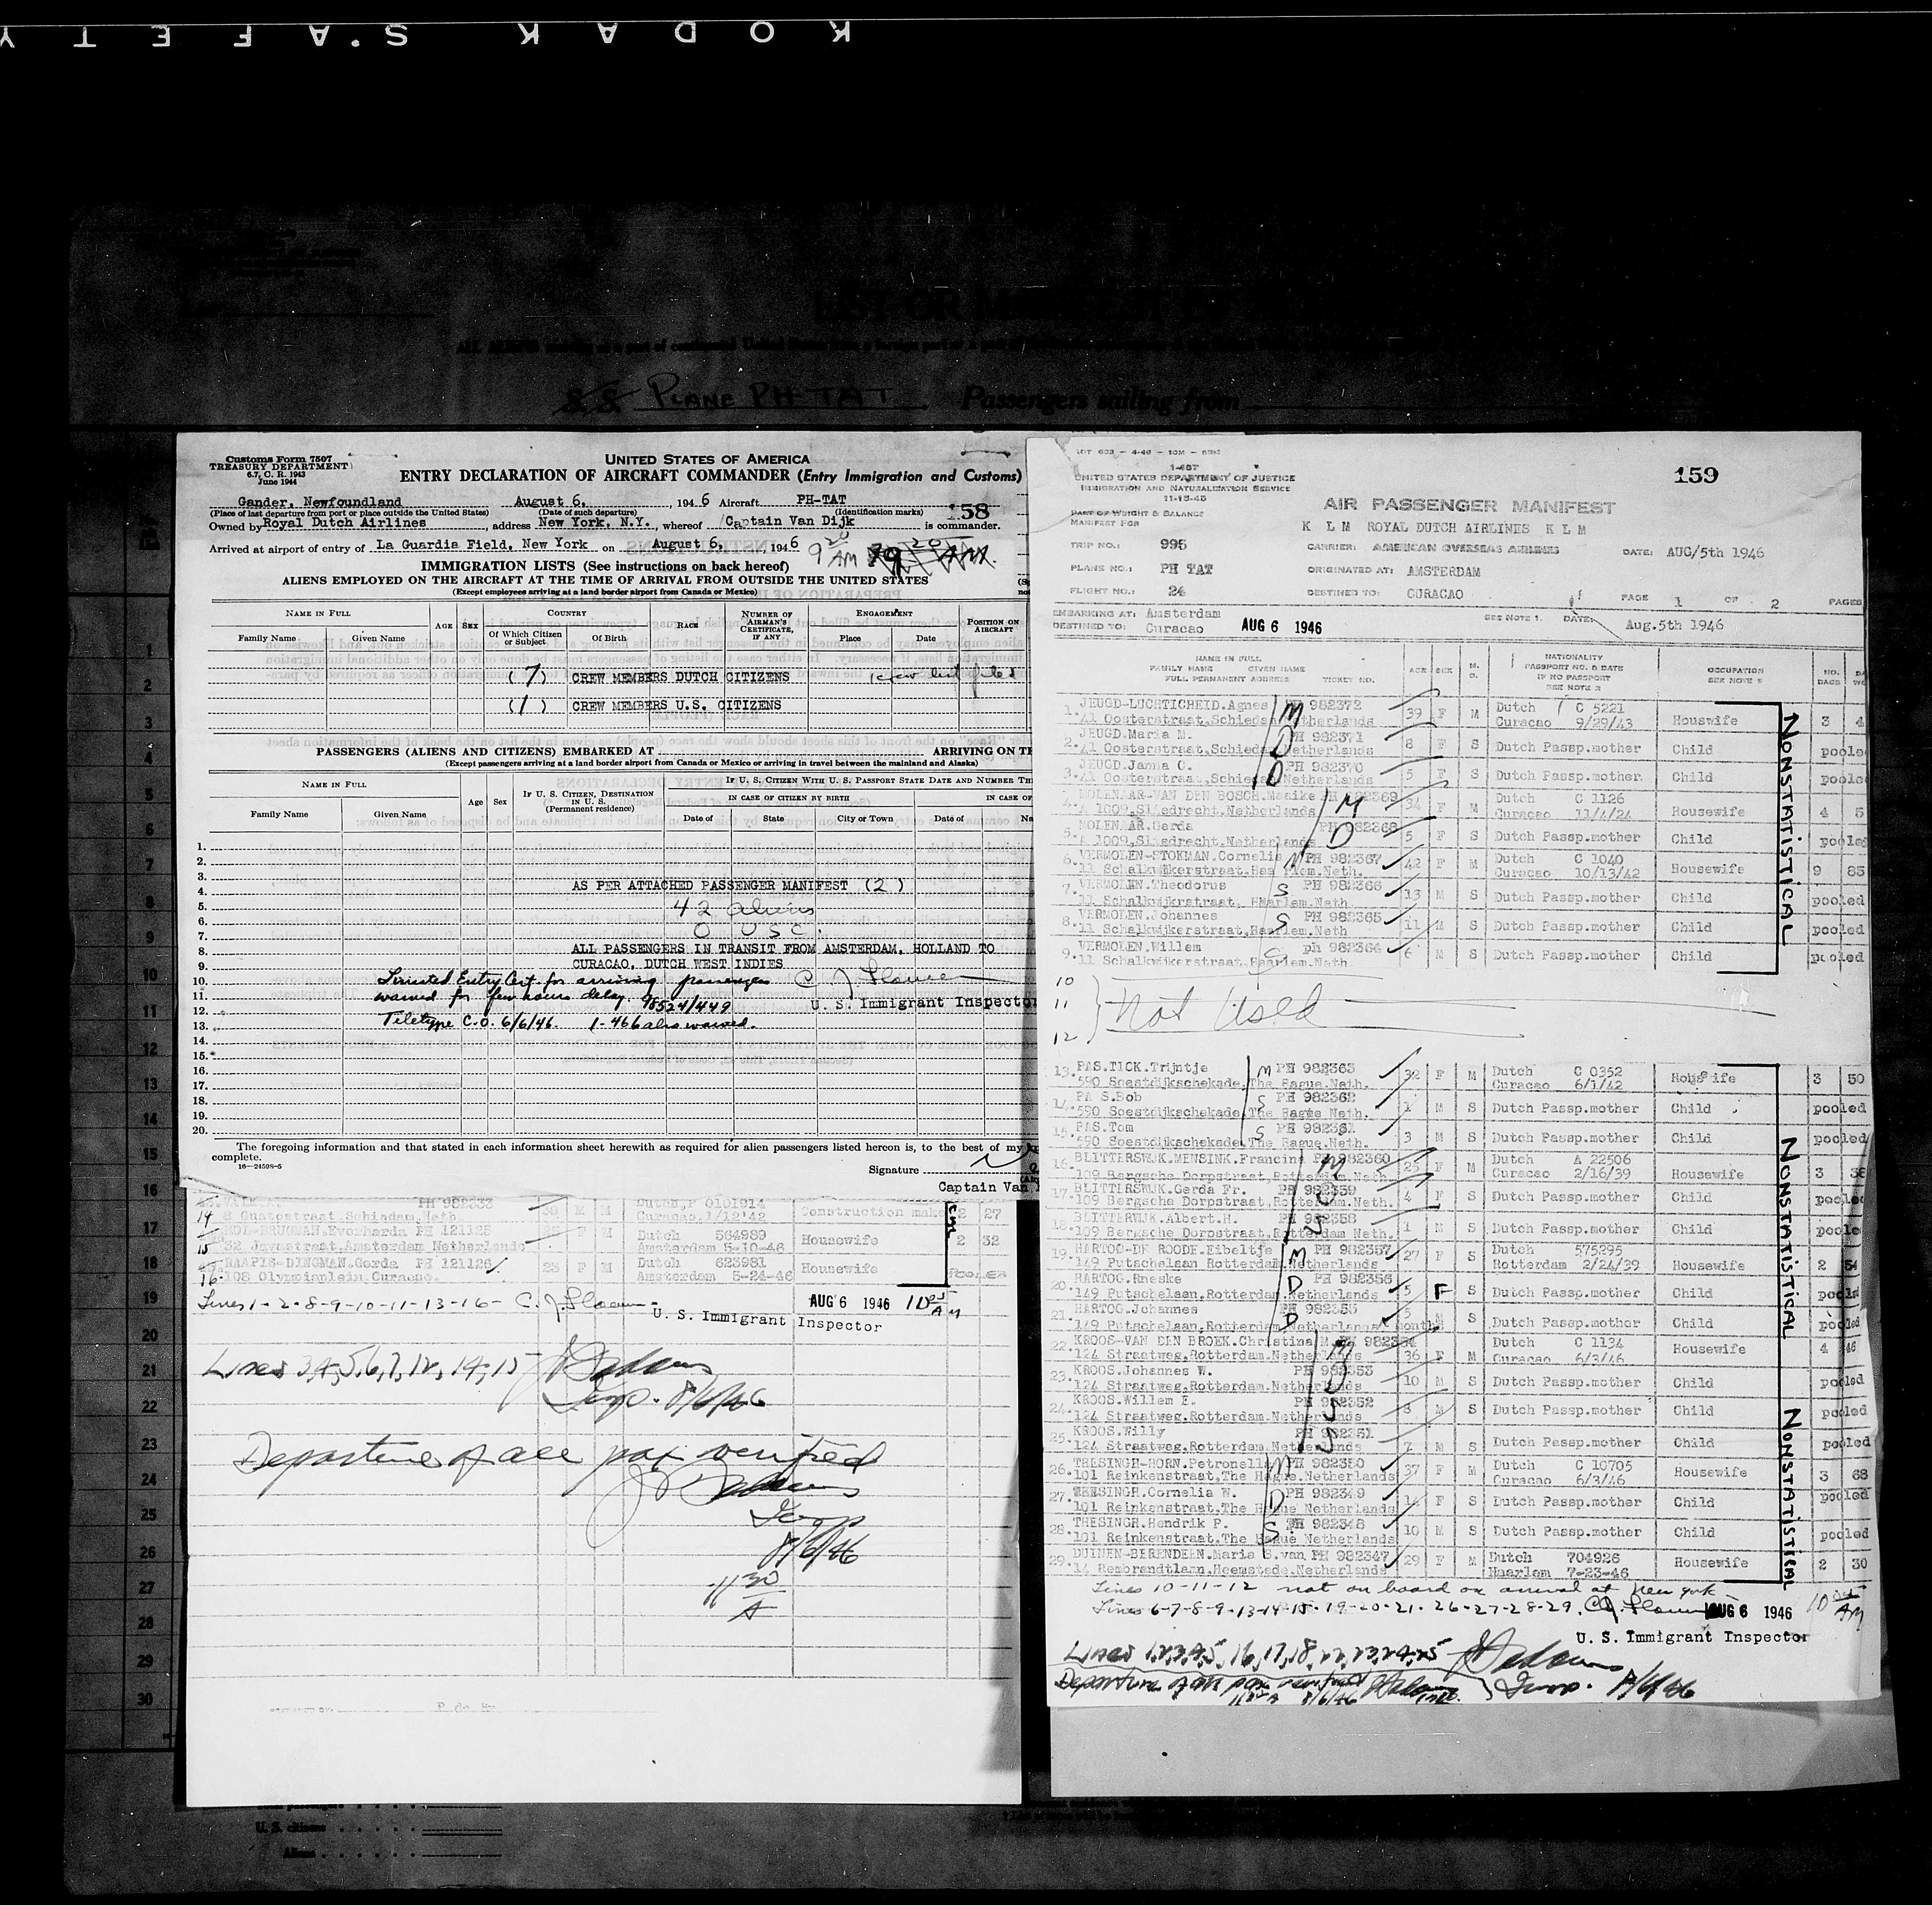 KODAK S'AFETY
LIST OR MANIFEST OF
SS PLANE PH-TAT Passengers sailing from
Customs Form 7507
TREASURY DEPARTMENT
6.7, C. R. 1943
June 1944
UNITED STATES OF AMERICA
ENTRY DECLARATION OF AIRCRAFT COMMANDER (Entry Immigration and Customs)
Gander, Newfoundland August 6, , 194 6 Aircraft PH-TAT
(Place of last departure from port or place outside the United States) (Date of such departure) (Identification marks)
158
Owned by Royal Dutch Airlines , address New York, N.Y. , whereof Captain Van Dijk is commander.
Arrived at airport of entry of La Guardia Field, New York on August 6, , 194 6 9 20 AM
IMMIGRATION LISTS (See instructions on back hereof)
ALIENS EMPLOYED ON THE AIRCRAFT AT THE TIME OF ARRIVAL FROM OUTSIDE THE UNITED STATES
(Except employees arriving at a land border airport from Canada or Mexico)
NAME IN FULL AGE SEX COUNTRY RACE NUMBER OF AIRMAN'S CERTIFICATE, IF ANY ENGAGEMENT POSITION ON AIRCRAFT
Family Name Given Name Of Which Citizen or Subject Of Birth Place Date
(7) CREW MEMBERS DUTCH CITIZENS crew list filed
(1) CREW MEMBERS U.S. CITIZENS
PASSENGERS (ALIENS AND CITIZENS) EMBARKED AT ARRIVING ON TH
(Except passengers arriving at a land border airport from Canada or Mexico or arriving in travel between the mainland and Alaska)
NAME IN FULL Age Sex IF U. S. CITIZEN, DESTINATION IN U. S. (Permanent residence) IF U. S. CITIZEN WITH U. S. PASSPORT STATE DATE AND NUMBER TH
IN CASE OF CITIZEN BY BIRTH IN CASE OF
Family Name Given Name Date of State City or Town Date of Na
1.
2.
3.
4. AS PER ATTACHED PASSENGER MANIFEST (2)
5. 42 aliens
6.
7. 0 USC.
8. ALL PASSENGERS IN TRANSIT FROM AMSTERDAM, HOLLAND TO
9. CURACAO, DUTCH WEST INDIES
10. Limited Entry Cert. for arriving passengers
11. waived for few hours delay. 98524/449 U. S. Immigrant Inspector
12. Teletype C.O. 6/6/46. 1-466 also waived.
13.
14.
15.
16.
17.
18.
19.
20.
The foregoing information and that stated in each information sheet herewith as required for alien passengers listed hereon is, to the best of my
complete.
16—24598-5
Signature
Captain Van
PH 982338 38 M M Dutch,P 0101914 Construction make 2 27
14 8 Guatostraat.Schiedam.Neth Curacao.1/12'42
MOL-BRUGMAN.Everharda PH 121125 F M Dutch 564989 Housewife 2 32
15 32 Javastraat.Amsterdam Netherlands Amsterdam 5-10-46
RAAPIS-DINGMAN.Gerda PH 121126 23 F M Dutch 623981 Housewife POOLED
16 108 Olympiaplein.Curacao. Amsterdam 5-24-46
Lines 1-2-8-9-10-11-13-16- AUG 6 1946 10 AM
U. S. Immigrant Inspector
Lines 3,4,5,6,7,12,14,15
Insp. 8/6/46
Departure of all pax verified
Insp
8/6/46
11 30
A
159
1-467
UNITED STATES DEPARTMENT OF JUSTICE
IMMIGRATION AND NATURALIZATION SERVICE
11-15-45
AIR PASSENGER MANIFEST
PART OF WEIGHT & BALANCE
MANIFEST FOR
K L M ROYAL DUTCH AIRLINES K L M
TRIP NO.: 995 CARRIER: AMERICAN OVERSEAS AIRLINES DATE: AUG/5th 1946
PLANE NO.: PH TAT ORIGINATED AT: AMSTERDAM
FLIGHT NO.: 24 DESTINED TO: CURACAO PAGE 1 OF 2 PAGES
EMBARKING AT: Amsterdam SEE NOTE 1. DATE: Aug.5th 1946
DESTINED TO: Curacao AUG 6 1946
NAME IN FULL
FAMILY NAME GIVEN NAME
FULL PERMANENT ADDRESS TICKET NO. AGE SEX M. S. NATIONALITY PASSPORT NO. & DATE IF NO PASSPORT SEE NOTE 2 OCCUPATION NO. BAGS
1. JEUGD-LUCHTIGHEID.Agnes PH 982372 39 F M Dutch C 5221 Housewife 3 4
41 Oosterstraat,Schiedam Netherlands Curacao 9/29/43
2. JEUGD.Maria M. PH 982371 8 F S Dutch Passp.mother Child pooled
41 Oosterstraat,Schiedam Netherlands
3. JEUGD.Janna C. PH 982370 5 F S Dutch Passp.mother Child pooled
41 Oosterstraat,Schiedam Netherlands
4. MOLENAAR-VAN DEN BOSCH.Maaike PH 982369 34 F M Dutch C 1126 Housewife 4 5
A 1009,Sliedrecht,Netherlands Curacao 11/4/24
5. MOLENAAR.Gerda PH 982368 5 F S Dutch Passp.mother Child pooled
A 1009,Sliedrecht,Netherlands
6. VERMOLEN-STOKMAN.Cornelia PH 982367 42 F M Dutch C 1040 Housewife 9 85
11 Schalkwijkerstraat.Haarlem.Neth Curacao 10/13/42
7. VERMOLEN.Theodorus PH 982366 13 M S Dutch Passp.mother Child pooled
11 Schalkwijkrstraat, Haarlem.Neth
8. VERMOLEN.Johannes PH 982365 11 M S Dutch Passp.mother Child pooled
11 Schalkwijkerstraat,Haarlem.Neth
9. VERMOLEN.Willem ph 982364 6 M S Dutch Passp.mother Child pooled
11 Schalkwijkerstraat.Haarlem.Neth
NONSTATISTICAL
10
11 Not Used
12
13. PAS.TICK.Trijntje PH 982363 32 F M Dutch C 0352 Housewife 3 50
590 Soestdijkschekade,The Hague.Neth. Curacao 6/1/42
14. PA S.Bob PH 982362 1 M S Dutch Passp.mother Child pooled
590 Soestdijkschekade,The Hague Neth.
15. PAS.Tom PH 982361 3 M S Dutch Passp.mother Child pooled
590 Soestdijkschekade,The Hague.Neth.
16. BLITTERSWIJK.MENSINK.Francina PH 982360 25 F M Dutch A 22506 Housewife 3 38
109 Bergsche Dorpstraat,Rotterdam Neth. Curacao 2/16/39
17. BLITTERSWIJK.Gerda Fr. PH 982359 4 F S Dutch Passp.mother Child pooled
109 Bergsche Dorpstraat,Rotterdam Neth.
18. BLITTERWIJK.Albert.H. PH 982358 1 M S Dutch Passp.mother Child pooled
109 Bergsche Dorpstraat,Rotterdam Neth.
19. HARTOG-DE ROODE.Eibeltje PH 982357 27 F S Dutch 575295 Housewife 2 54
149 Putschelaan Rotterdam.Netherlands Rotterdam 2/24/39
20. HARTOG.Rneske PH 982356 5 F S Dutch Passp.mother Child pooled
149 Putschelaan,Rotterdam.Netherlands
21. HARTOG.Johannes PH 982355 5 months M S Dutch Passp.mother Child pooled
149 Putschelaan,Rotterdam.Netherlands
NONSTATISTICAL
22. KROOS-VAN DEN BROEK.Christina M. PH 982354 36 F M Dutch C 1134 Housewife 4 46
124 Straatweg,Rotterdam.Netherlands Curacao 6/3/46
23. KROOS.Johannes W. PH 982353 10 M S Dutch Passp.mother Child pooled
124 Straatweg.Rotterdam.Netherlands
24. KROOS.Willem E. PH 982352 8 M S Dutch Passp.mother Child pooled
124 Straatweg.Rotterdam.Netherlands
25. KROOS.Willy PH 982351 7 M S Dutch Passp.mother Child pooled
124 Straatweg.Rotterdam.Netherlands
26. TRESINGH-HORN.Petronella PH 982350 37 F M Dutch C 10705 Housewife 3 68
101 Reinkenstraat,The Hague.Netherlands Curacao 6/3/46
27. THESINGH.Cornelia W. PH 982349 14 F S Dutch Passp.mother Child pooled
101 Reinkenstraat.The Hague Netherlands
28. THESINGH.Hendrik P. PH 982348 10 M S Dutch Passp.mother Child pooled
101 Reinkenstraat.The Hague Netherlands
29. DUINEN-BERENDEEN.Maria S.van PH 982347 29 F M Dutch 704926 Housewife 2 30
14 Rembrandtlaan.Heemstede.Netherlands Haarlem 7-23-46
NONSTATISTICAL
Lines 10-11-12 not on board on arrival at New York
Lines 6-7-8-9-13-14-15-19-20-21-26-27-28-29. AUG 6 1946 10 AM
U. S. Immigrant Inspector
Insp. 8/6/46
U. S. citizens
Aliens